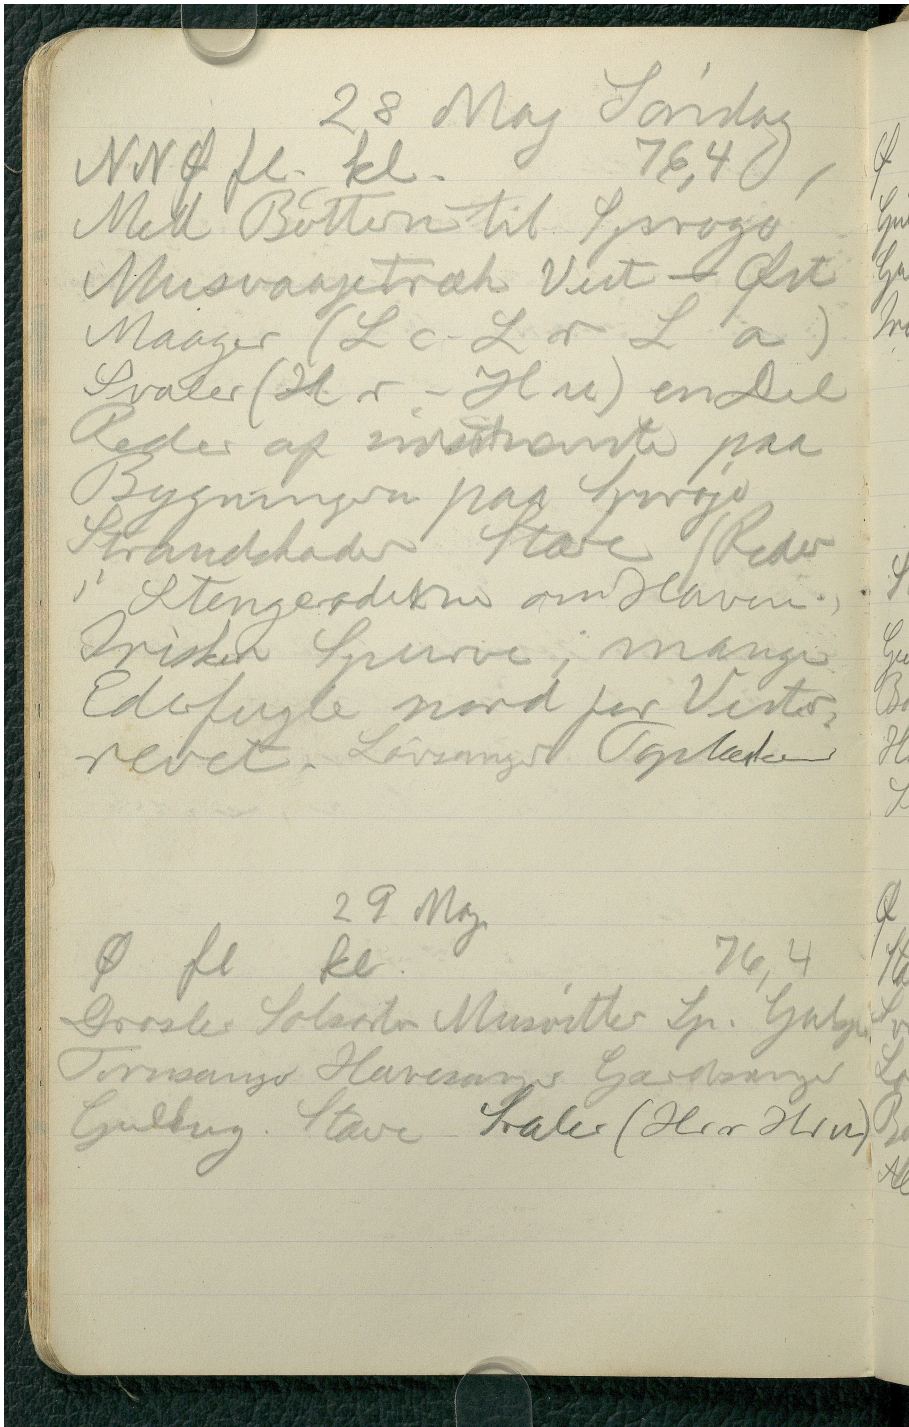 28 Maj Søndag
NNØ fl. kl. 76,4
Med Båtten til Sprogø
Musvaagetræk Vest — Øst
Maager (L c - L r L a)
Svaler (H r - H u) en Del
Reder af sidstnævnte paa
Bygningen paa Sprogø
Strandskader Stære (Reder
i Stengærderne om Haven.)
Irisker Spurve, mange
Ederfugle nord for Vester-
revet. Løvsanger Toplærke
29 Maj
Ø fl kl. 76,4
Drosler Solsorte Musvitter Sp. Gulsp.
Tornsanger Havesanger Gærdesanger
Gulbug. Stære Svaler (H r H u)